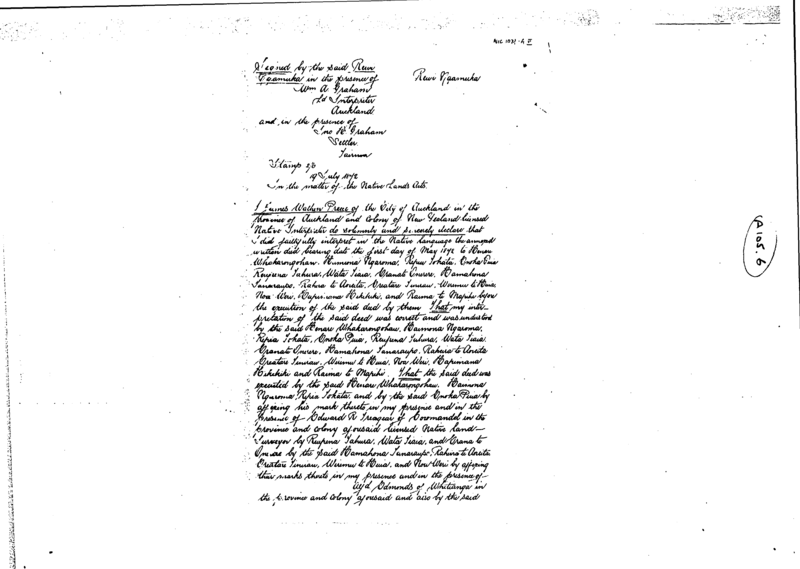 Signed by the said Rewi
Ngamuka in the presence of
Wm A Graham
Ld Interpreter
Auckland
and in the presence of
Jno H. Graham
Settler
Tairua
Rewi Ngamuka
Stamp
19 July 1872
In the matter of the Native Lands Acts.
I James Preece of the City of Auckland in the
Province of Auckland and Colony of New Zealand licensed
Native Interpreter do solemnly and sincerely declare that
I did faithfully interpret in the Native language the annexed
written deed bearing date the first day of May 1872 to Henare
Whakarongohau, Haimona Ngaroma, Ripia Tokata, Enoka Puia
Reupena Tahura, Wata Isaia,
Rahira te Aorata, Wiremu te Huia,
Noa Wiri, and Raima te Mapihi before
the execution of the said deed by them That my inter-
pretation of the said deed was correct and was understood
by the said Henare Whakarongohau, Haimona Ngaroma,
Ripia Tokata, Enoka Puia, Reupena Tahura, Wata Isaia
Rahira te Aorata
Wiremu te Huia, Noa Wiri,
and Raima te Mapihi. That the said deed was
executed by the said Henare Whakarongohau, Haimona
Ngaroma, Ripia Tokata, and by the said Enoka Puia by
affixing his mark thereto in my presence and in the
presence of Edward R Tregear of Coromandel in the
Province and Colony aforesaid licensed Native land
Surveyor by Reupena Tahura, Wata Isaia, and
by the said Rahira te Aorata
Wiremu te Huia, and Noa Wiri by affixing
their marks thereto in my presence and in the presence of
Edmonds of Whitianga in
the Province and Colony aforesaid and also by the said
A 105.6